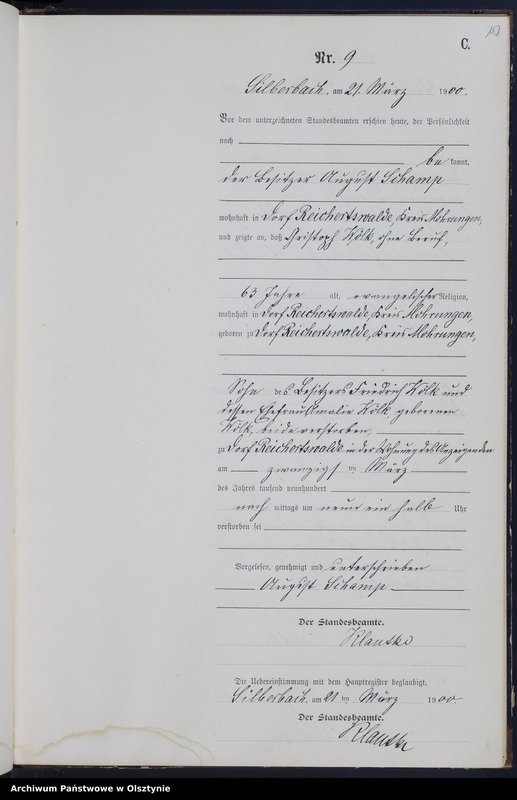 10
C.
Nr. 9
Silberbach, am 21. März 1900.
Vor dem unterzeichneten Standesbeamten erschien heute, der Persönlichkeit
nach
be kannt,
der Besitzer August Schamp
wohnhaft in Dorf Reichertswalde, Kreis Mohrungen,
und zeigte an, daß Christoph Kölk, ohne Beruf,
63 Jahre alt, evangelischer Religion,
wohnhaft in Dorf Reichertswalde, Kreis Mohrungen,
geboren zu Dorf Reichertswalde, Kreis Mohrungen,
Sohn des Besitzers Friedrich Kölk und
dessen Ehefrau Amalie Kölk geborenen
Kölk, beide verstorben,
zu Dorf Reichertswalde in der Wohnung des Anzeigenden
am zwanzigsten März
des Jahres tausend neunhundert
nach mittags um neun ein halb Uhr
verstorben sei
Vorgelesen, genehmigt und unterschrieben
August Schamp
Der Standesbeamte.
Klautke
Die Uebereinstimmung mit dem Hauptregister beglaubigt.
Silberbach, am 21 ten März 1900.
Der Standesbeamte.
Klautke
Archiwum Państwowe w Olsztynie